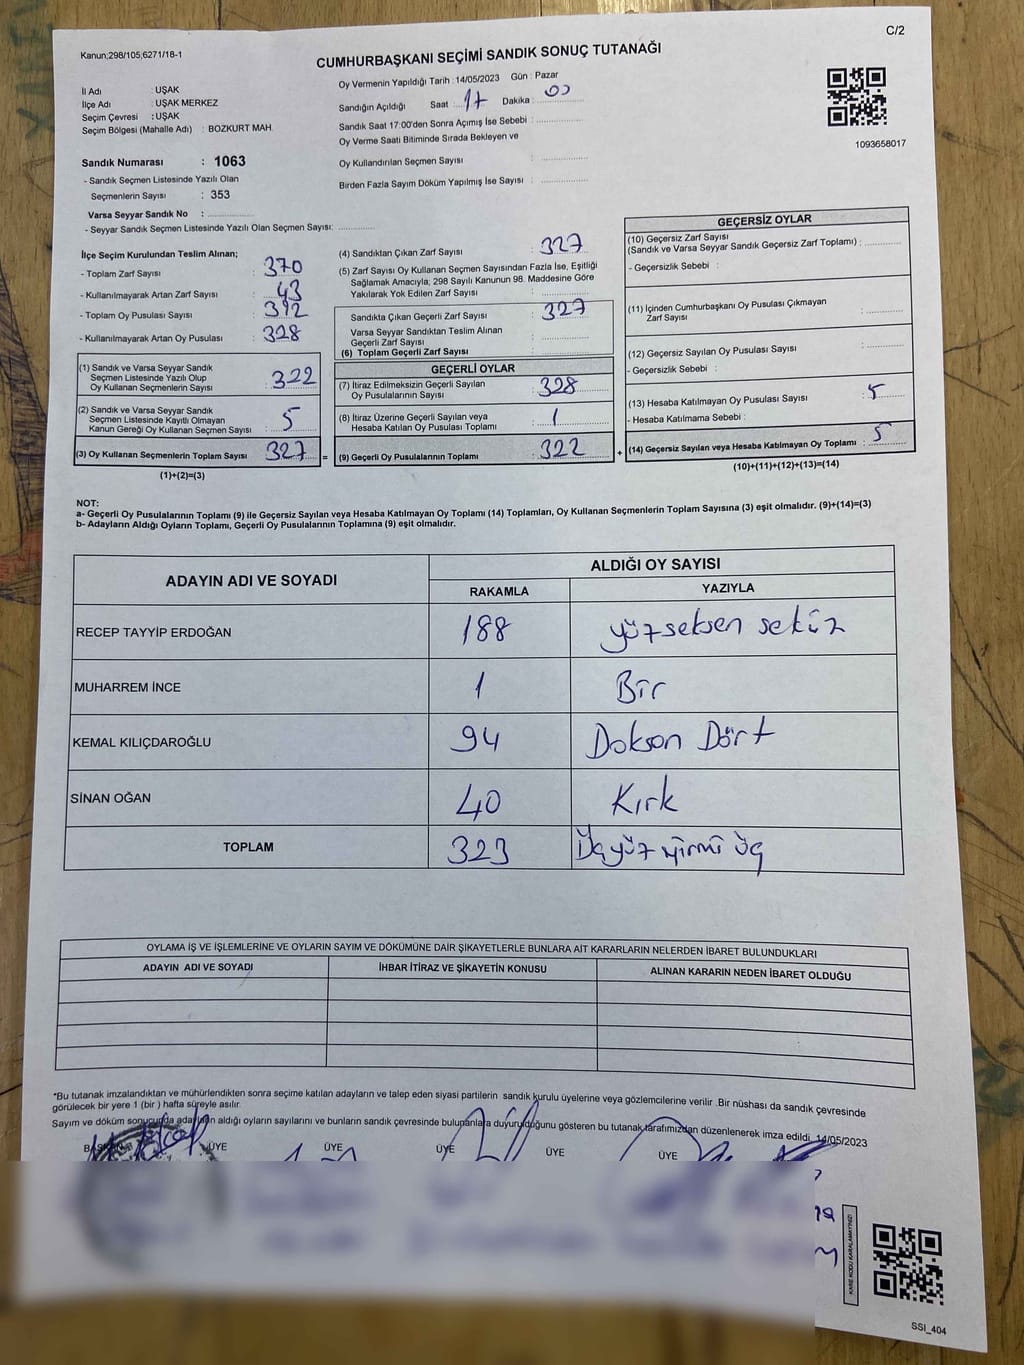 C/2
Kanun;298/105;6271/18-1
CUMHURBAŞKANI SEÇİMİ SANDIK SONUÇ TUTANAĞI
İl Adı : UŞAK
İlçe Adı : UŞAK MERKEZ
Seçim Çevresi : UŞAK
Seçim Bölgesi (Mahalle Adı) : BOZKURT MAH.
Oy Vermenin Yapıldığı Tarih : 14/05/2023 Gün : Pazar
Sandığın Açıldığı Saat : 17 Dakika : 00
Sandık Saat 17:00'den Sonra Açımış İse Sebebi :
Oy Verme Saati Bitiminde Sırada Bekleyen ve
Oy Kullandırılan Seçmen Sayısı :
Birden Fazla Sayım Döküm Yapılmış İse Sayısı :
1093658017
Sandık Numarası : 1063
- Sandık Seçmen Listesinde Yazılı Olan
Seçmenlerin Sayısı : 353
Varsa Seyyar Sandık No :
- Seyyar Sandık Seçmen Listesinde Yazılı Olan Seçmen Sayısı:
İlçe Seçim Kurulundan Teslim Alınan;
- Toplam Zarf Sayısı : 370
- Kullanılmayarak Artan Zarf Sayısı : 43
- Toplam Oy Pusulası Sayısı : 392
- Kullanılmayarak Artan Oy Pusulası : 328
(1) Sandık ve Varsa Seyyar Sandık
Seçmen Listesinde Yazılı Olup
Oy Kullanan Seçmenlerin Sayısı : 322
(2) Sandık ve Varsa Seyyar Sandık
Seçmen Listesinde Kayıtlı Olmayan
Kanun Gereği Oy Kullanan Seçmen Sayısı : 5
(3) Oy Kullanan Seçmenlerin Toplam Sayısı : 327
(1)+(2)=(3)
(4) Sandıktan Çıkan Zarf Sayısı : 327
(5) Zarf Sayısı Oy Kullanan Seçmen Sayısından Fazla İse, Eşitliği
Sağlamak Amacıyla; 298 Sayılı Kanunun 98. Maddesine Göre
Yakılarak Yok Edilen Zarf Sayısı :
Sandıkta Çıkan Geçerli Zarf Sayısı : 327
Varsa Seyyar Sandıktan Teslim Alınan
Geçerli Zarf Sayısı :
(6) Toplam Geçerli Zarf Sayısı :
GEÇERLİ OYLAR
(7) İtiraz Edilmeksizin Geçerli Sayılan
Oy Pusulalarının Sayısı : 328
(8) İtiraz Üzerine Geçerli Sayılan veya
Hesaba Katılan Oy Pusulası Toplamı : 1
= (9) Geçerli Oy Pusulalarının Toplamı : 322
GEÇERSİZ OYLAR
(10) Geçersiz Zarf Sayısı
(Sandık ve Varsa Seyyar Sandık Geçersiz Zarf Toplamı) :
- Geçersizlik Sebebi :
(11) İçinden Cumhurbaşkanı Oy Pusulası Çıkmayan
Zarf Sayısı :
(12) Geçersiz Sayılan Oy Pusulası Sayısı :
- Geçersizlik Sebebi :
(13) Hesaba Katılmayan Oy Pusulası Sayısı : 5
- Hesaba Katılmama Sebebi :
+ (14) Geçersiz Sayılan veya Hesaba Katılmayan Oy Toplamı : 5
(10)+(11)+(12)+(13)=(14)
NOT:
a- Geçerli Oy Pusulalarının Toplamı (9) ile Geçersiz Sayılan veya Hesaba Katılmayan Oy Toplamı (14) Toplamları, Oy Kullanan Seçmenlerin Toplam Sayısına (3) eşit olmalıdır. (9)+(14)=(3)
b- Adayların Aldığı Oyların Toplamı, Geçerli Oy Pusulalarının Toplamına (9) eşit olmalıdır.
ADAYIN ADI VE SOYADI ALDIĞI OY SAYISI
RAKAMLA YAZIYLA
RECEP TAYYİP ERDOĞAN 188 yüzseksen sekiz
MUHARREM İNCE 1 Bir
KEMAL KILIÇDAROĞLU 94 Dokson Dört
SİNAN OĞAN 40 Kırk
TOPLAM 323 Üçyüz yirmi üç
OYLAMA İŞ VE İŞLEMLERİNE VE OYLARIN SAYIM VE DÖKÜMÜNE DAİR ŞİKAYETLERLE BUNLARA AİT KARARLARIN NELERDEN İBARET BULUNDUKLARI
ADAYIN ADI VE SOYADI İHBAR İTİRAZ VE ŞİKAYETİN KONUSU ALINAN KARARIN NEDEN İBARET OLDUĞU
*Bu tutanak imzalandıktan ve mühürlendikten sonra seçime katılan adayların ve talep eden siyasi partilerin sandık kurulu üyelerine veya gözlemcilerine verilir .Bir nüshası da sandık çevresinde
görülecek bir yere 1 (bir ) hafta süreyle asılır.
Sayım ve döküm sonucunda adayların aldığı oyların sayılarını ve bunların sandık çevresinde bulupanlara duyurulduğunu gösteren bu tutanak tarafımızdan düzenlenerek imza edildi. 14/05/2023
BAŞKAN ÜYE ÜYE ÜYE ÜYE ÜYE
KARE KODU KARALAMAYINIZ!
SSI_404